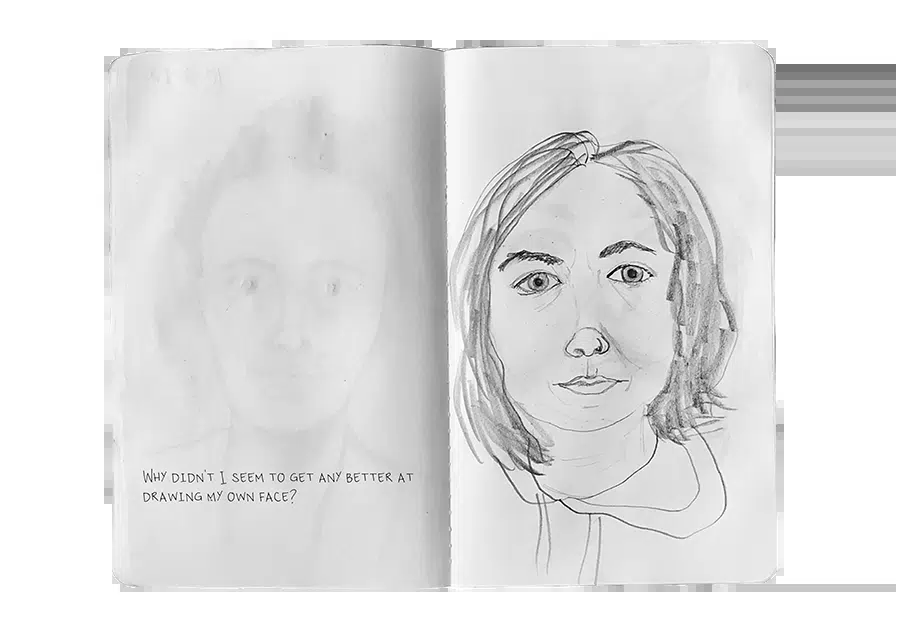 WHY DIDN'T I SEEM TO GET ANY BETTER AT
DRAWING MY OWN FACE?